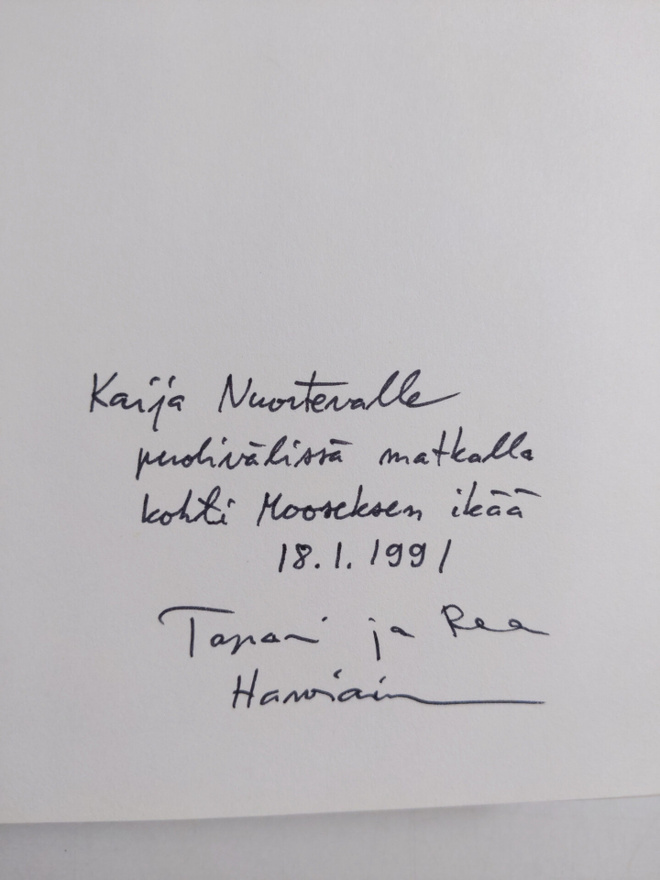 Kaija Nuortevalle
puolivälissä matkalla
kohti Mooseksen ikää
18.1.1991
Tapani ja Rea
Harviain